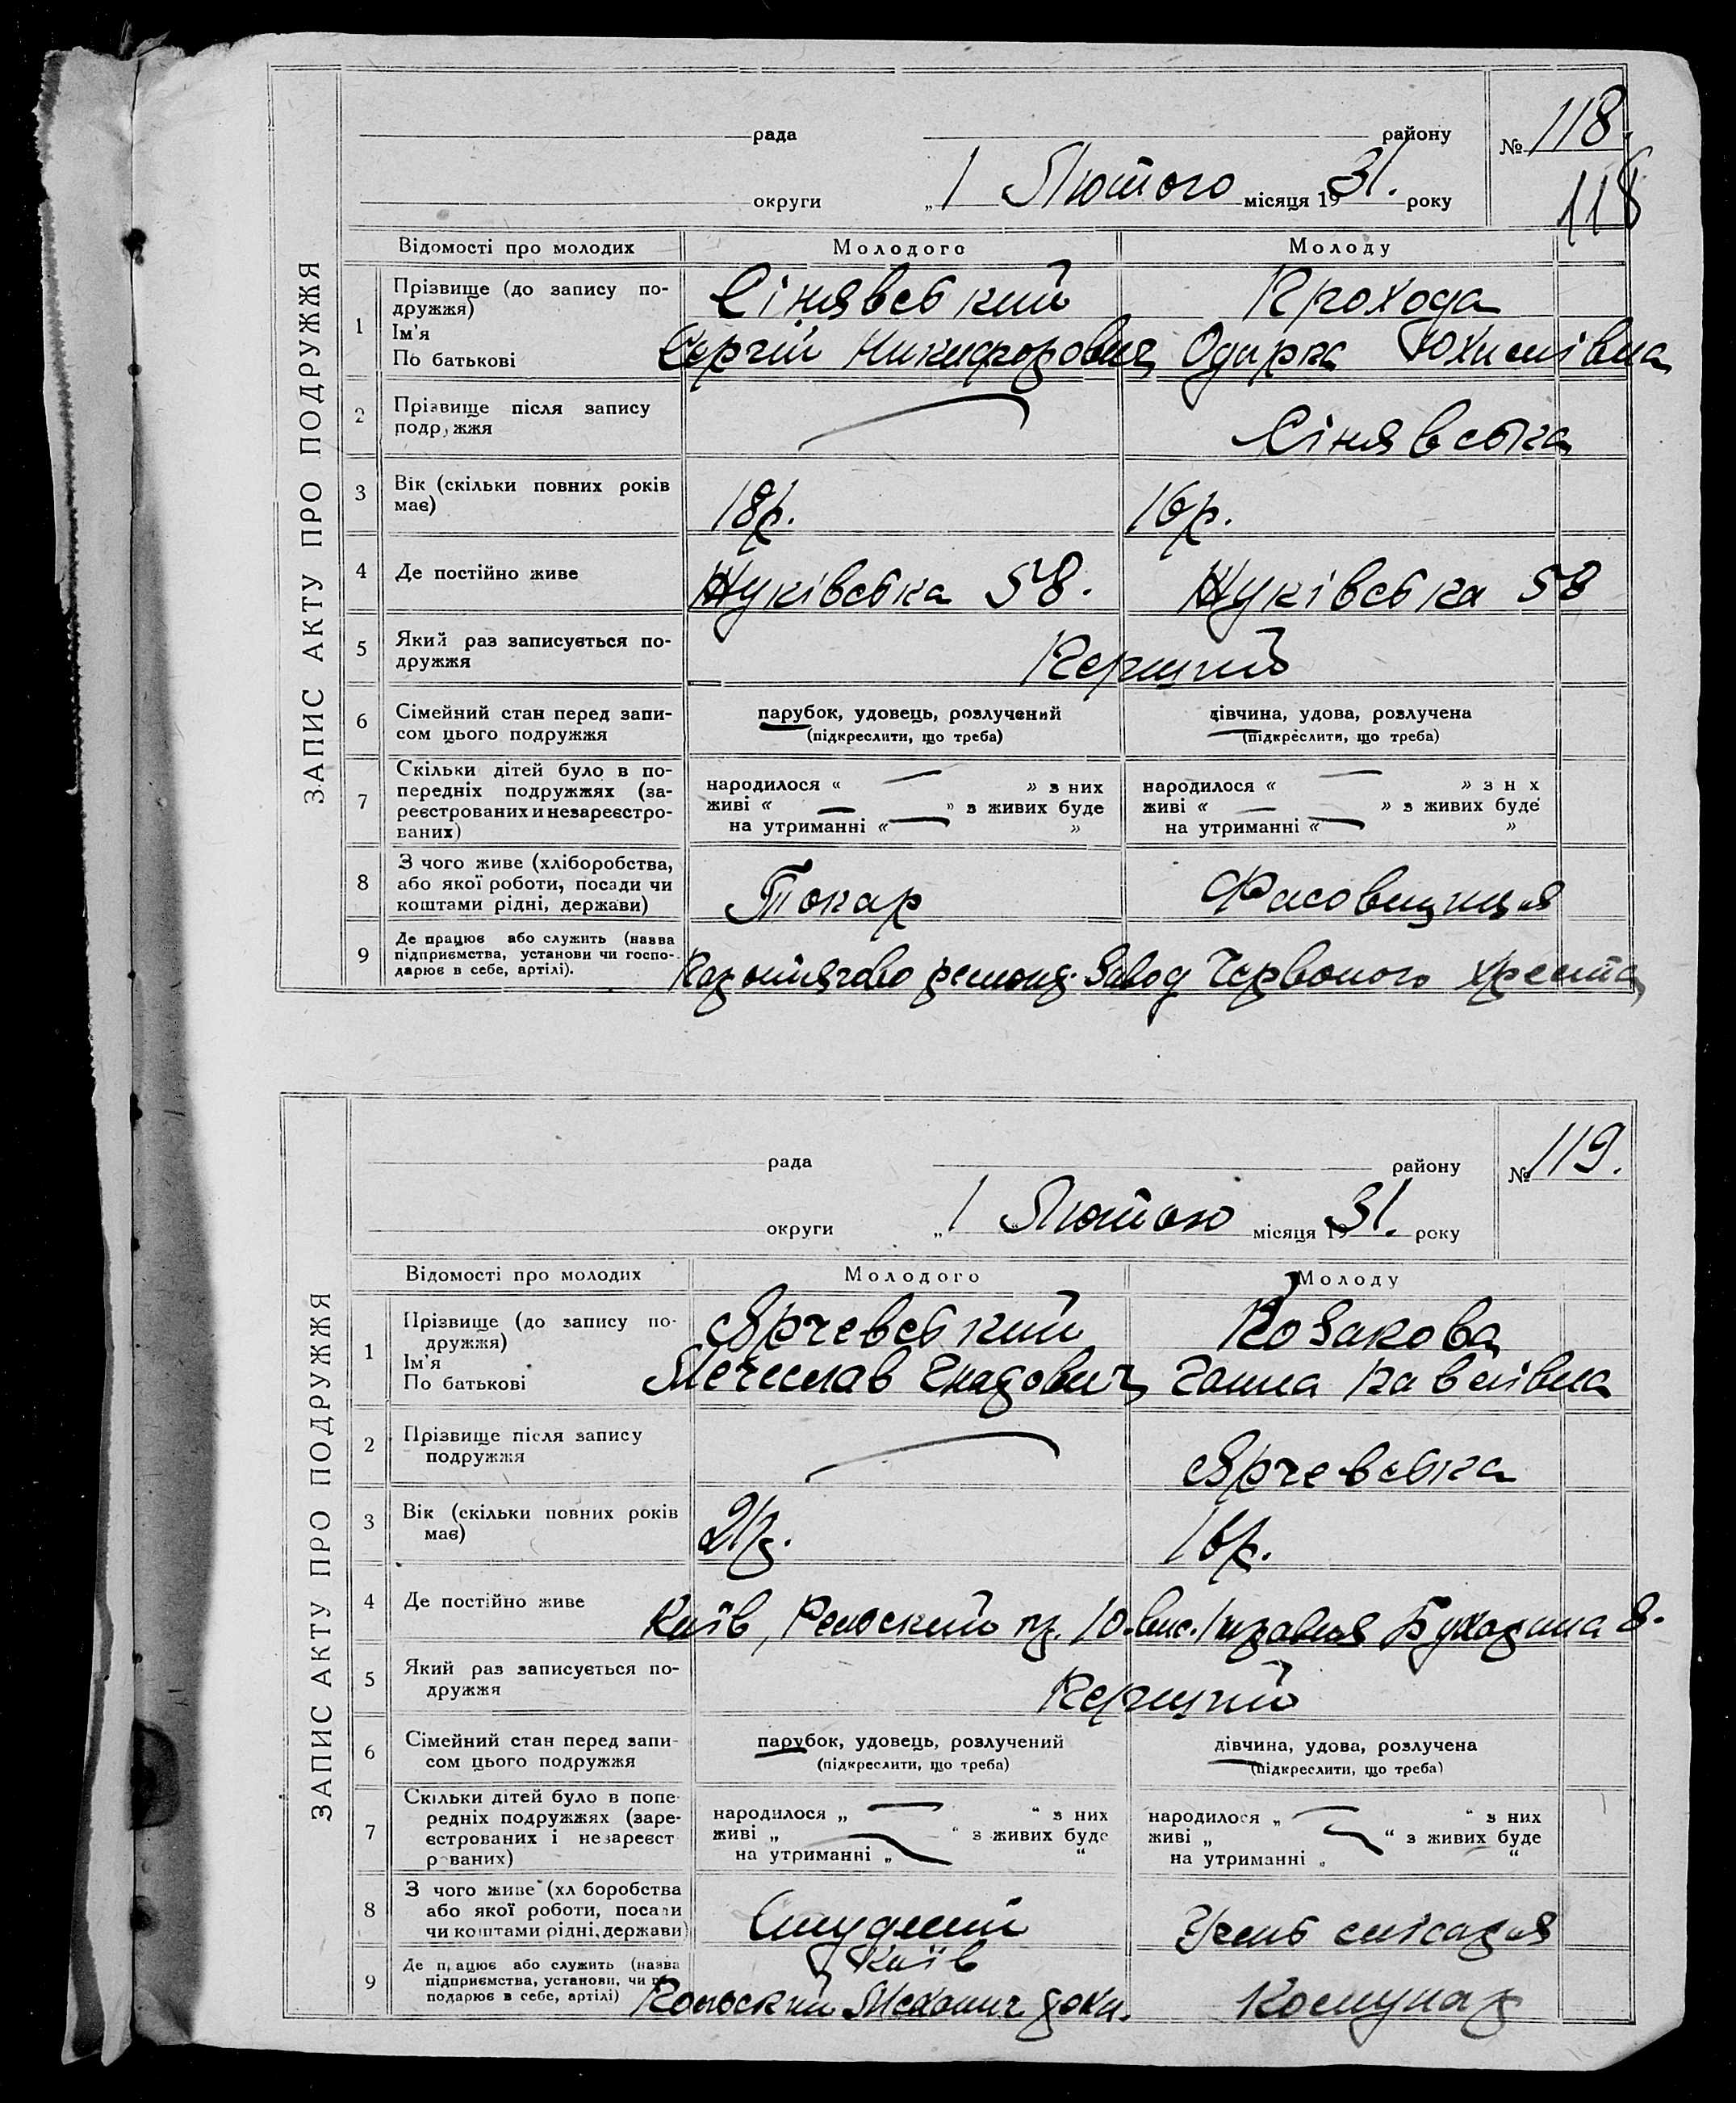 ЗАПИС АКТУ ПРО ПОДРУЖЖЯ
рада району № 118.
округи „ 1 Лютого місяця 1931. року
118
Відомості про молодих Молодого Молоду
1 Прізвище (до запису по-
дружжя) Сінявський Прохода
Ім'я
По батькові Сергій Никифорович Одарка Юхимівна
2 Прізвище після запису
подружжя Сінявська
3 Вік (скільки повних років
має) 18р. 16р.
4 Де постійно живе Жуківська 58. Жуківська 58
5 Який раз записується по-
дружжя Перший
6 Сімейний стан перед запи-
сом цього подружжя
парубок, удовець, розлучений дівчина, удова, розлучена
(підкреслити, що треба) (підкреслити, що треба)
7 Скільки дітей було в по-
передніх подружжях (за-
реєстрованих и незареєстро-
ваних)
народилося « » з них народилося « » з н х
живі « » з живих буде живі « » з живих буде
на утриманні « » на утриманні « »
8 З чого живе (хліборобства,
або якої роботи, посади чи
коштами рідні, держави) Токар Фасовщиця
9 Де працює або служить (назва
підприємства, установи чи госпо-
дарює в себе, артілі).
Завод Червоного Хреста
ЗАПИС АКТУ ПРО ПОДРУЖЖЯ
рада району № 119.
округи „ 1 Лютого місяця 1931. року
Відомості про молодих Молодого Молоду
1 Прізвище (до запису по-
дружжя) Ярчевський Козакова
Ім'я
По батькові Мечеслав Ганна Павлівна
2 Прізвище після запису
подружжя Ярчевська
3 Вік (скільки повних років
має) 21р. 18р.
4 Де постійно живе Київ, 8.
5 Який раз записується по-
дружжя Перший
6 Сімейний стан перед запи-
сом цього подружжя
парубок, удовець, розлучений дівчина, удова, розлучена
(підкреслити, що треба) (підкреслити, що треба)
7 Скільки дітей було в попе-
редніх подружжях (заре-
єстрованих і незареєст
рованих)
народилося „ “ з них народилося „ “ з них
живі „ “ з живих буде живі „ “ з живих буде
на утриманні „ “ на утриманні „ “
8 З чого живе (хл боробства
або якої роботи, посади
чи коштами рідні, держави) Студент Учень слюсаря
9 Де працює або служить (назва
підприємства, установи, чи го
подарює в себе, артілі) Київ
Польский Комунар